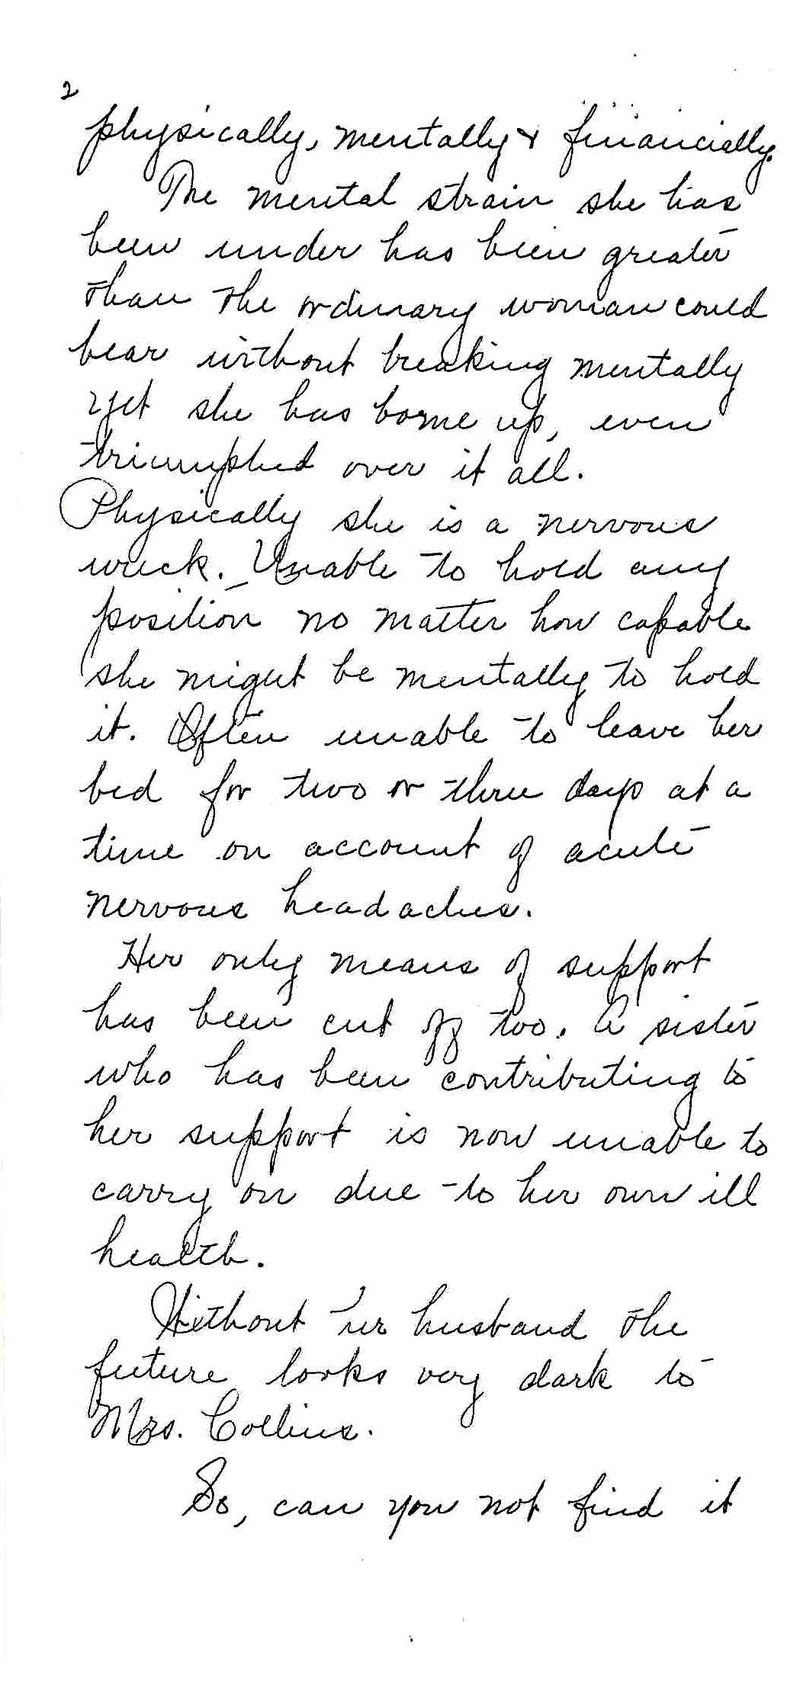 2
physically, mentally & financially.
The mental strain she has
been under has been greater
than the ordinary woman could
bear without breaking mentally
yet she has borne up, even
triumphed over it all.
Physically she is a nervous
wreck. Unable to hold any
position no matter how capable
she might be mentally to hold
it. Often unable to leave her
bed for two or three days at a
time on account of acute
nervous headaches.
Her only means of support
has been cut off too. A sister
who has been contributing to
her support is now unable to
carry on due to her own ill
health.
Without her husband the
future looks very dark to
Mrs. Collins.
So, can you not find it